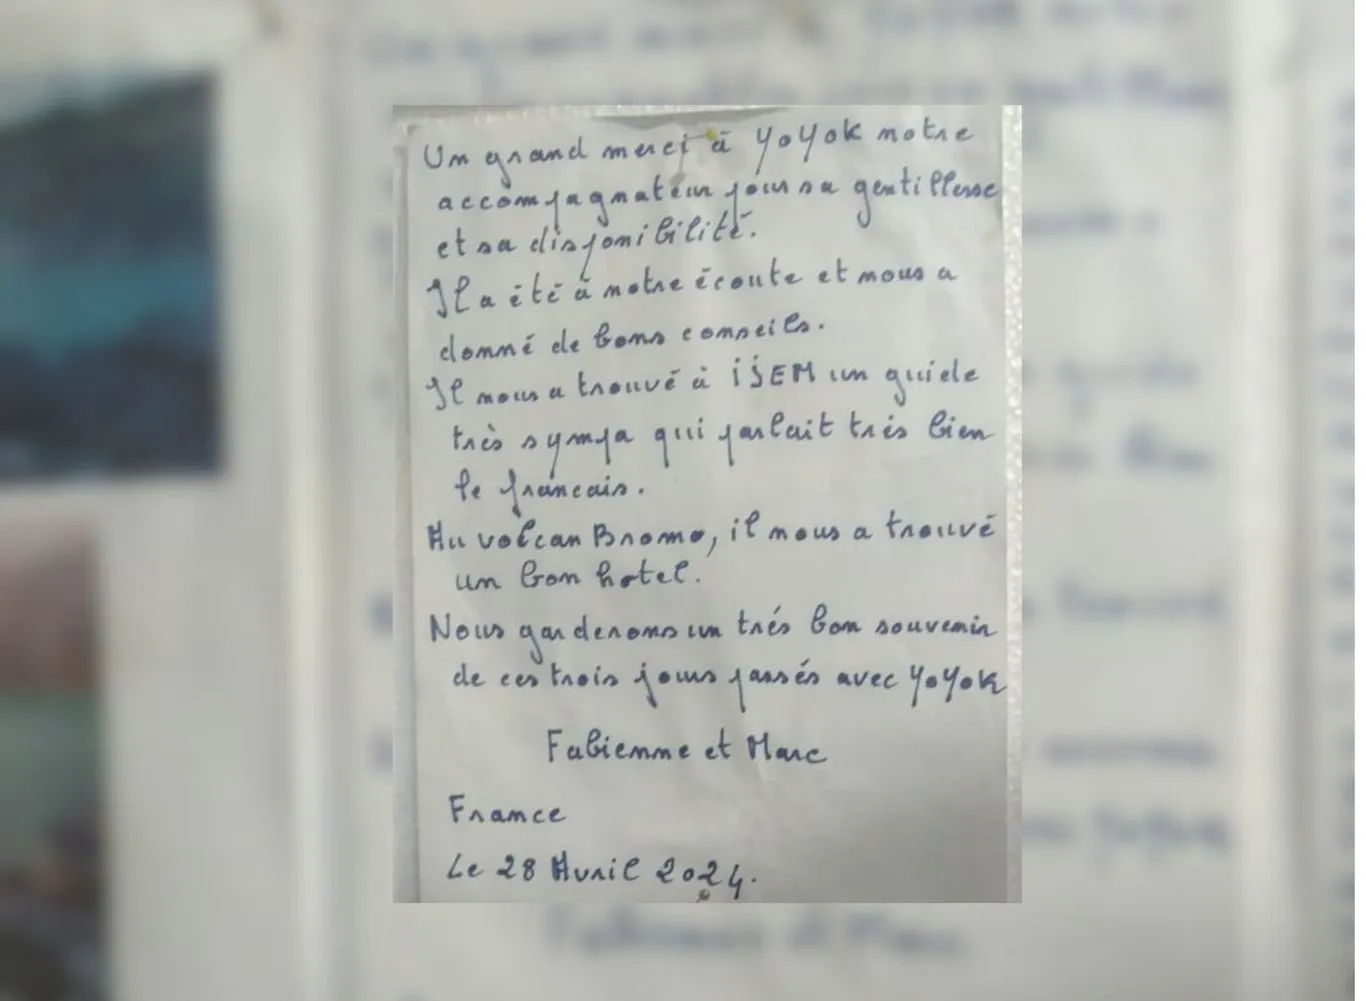 Un grand merci à YOYOK notre
accompagnateur pour sa gentillesse
et sa disponibilité.
Il a été à notre écoute et nous a
donné de bons conseils.
Il nous a trouvé à iJEM un guide
très sympa qui parlait très bien
le francais.
Au volcan Bromo, il nous a trouvé
un bon hotel.
Nous garderons un trés bon souvenir
de ces trois jours passés avec YOYOK
Fabienne et Marc
France
Le 28 Avril 2024.